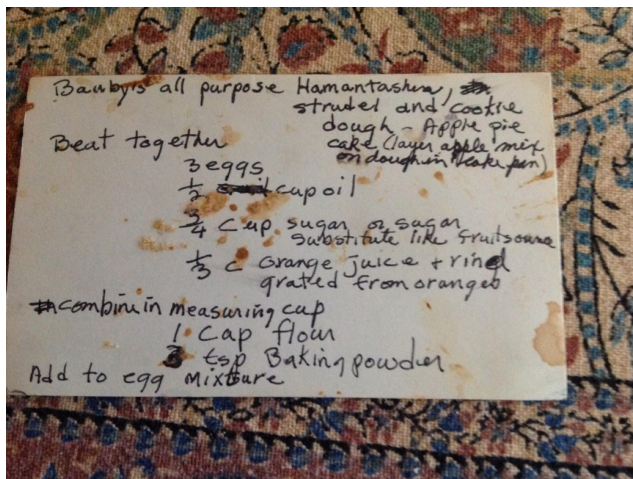 Bauby's all purpose Hamantashen,
strudel and cookie
dough - Apple pie
cake (layer apple mix
on dough in cake pan)
Beat together
3 eggs
1/2 cup oil
3/4 cup sugar or sugar
substitute like fruitsource
1/3 c orange juice + rind
grated from oranges
combine in measuring cup
1 cup flour
3 tsp Baking powder
Add to egg mixture